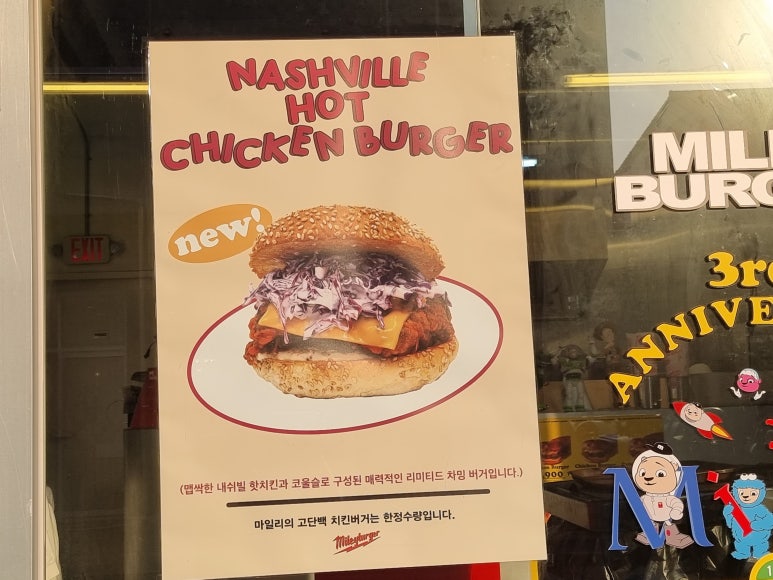 NASHVILLE
HOT
CHICKEN BURGER
new!
(맵싹한 내쉬빌 핫치킨과 코울슬로 구성된 매력적인 리미티드 차밍 버거입니다.)
마일리의 고단백 치킨버거는 한정수량입니다.
Mileyburger
EXIT
MIL
BURG
3r
ANNIVE
900
Mi